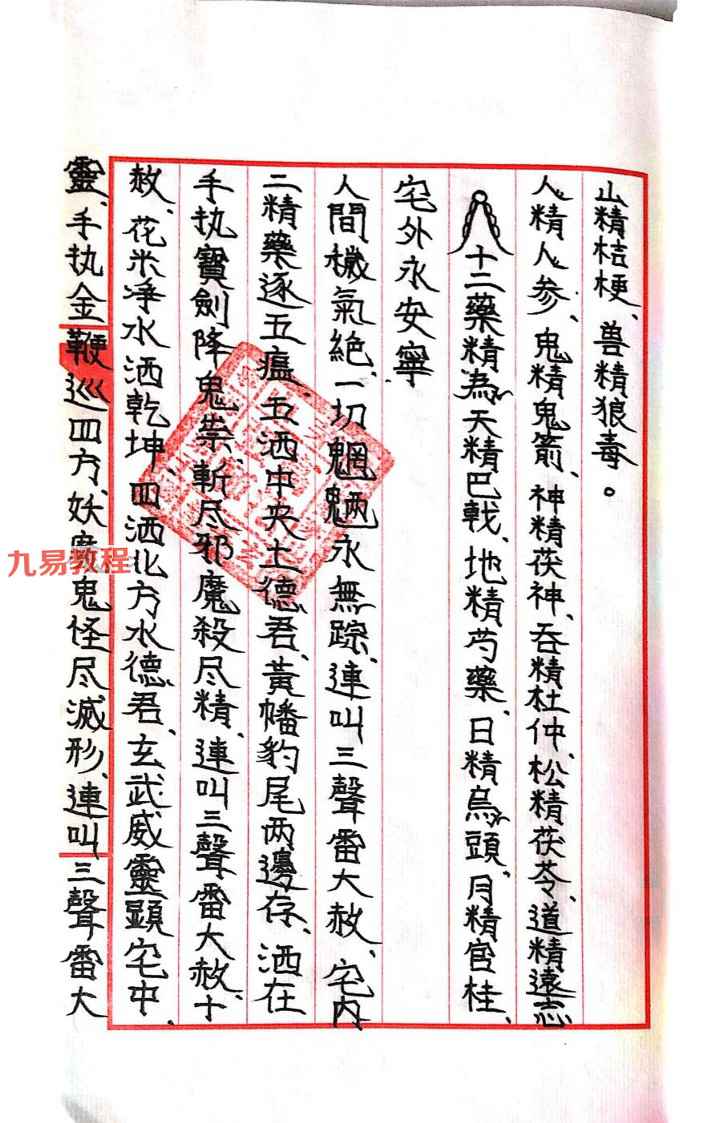 靈、手执金鞭巡四方、妖魔鬼怪尽滅形、連叫三聲雷大
赦、花米凈水洒乾坤、四洒北方水德君、玄武威靈顕宅中、
手执寳劍降鬼祟、斬尽邪魔殺尽精、連叫三聲雷大赦、十
二精藥逐五瘟、五洒中央土德君、黃幡豹尾两邊存、洒在
人間穢氣絶、一切魍魎永無踪、連叫三聲雷大赦、宅内
宅外永安寧
十二藥精為天精巴戟、地精芍藥、日精烏頭、月精官桂、
人精人参、鬼精鬼箭、神精茯神、吞精杜仲、松精茯苓、道精遠志
山精桔梗、兽精狼毒。
九易教程